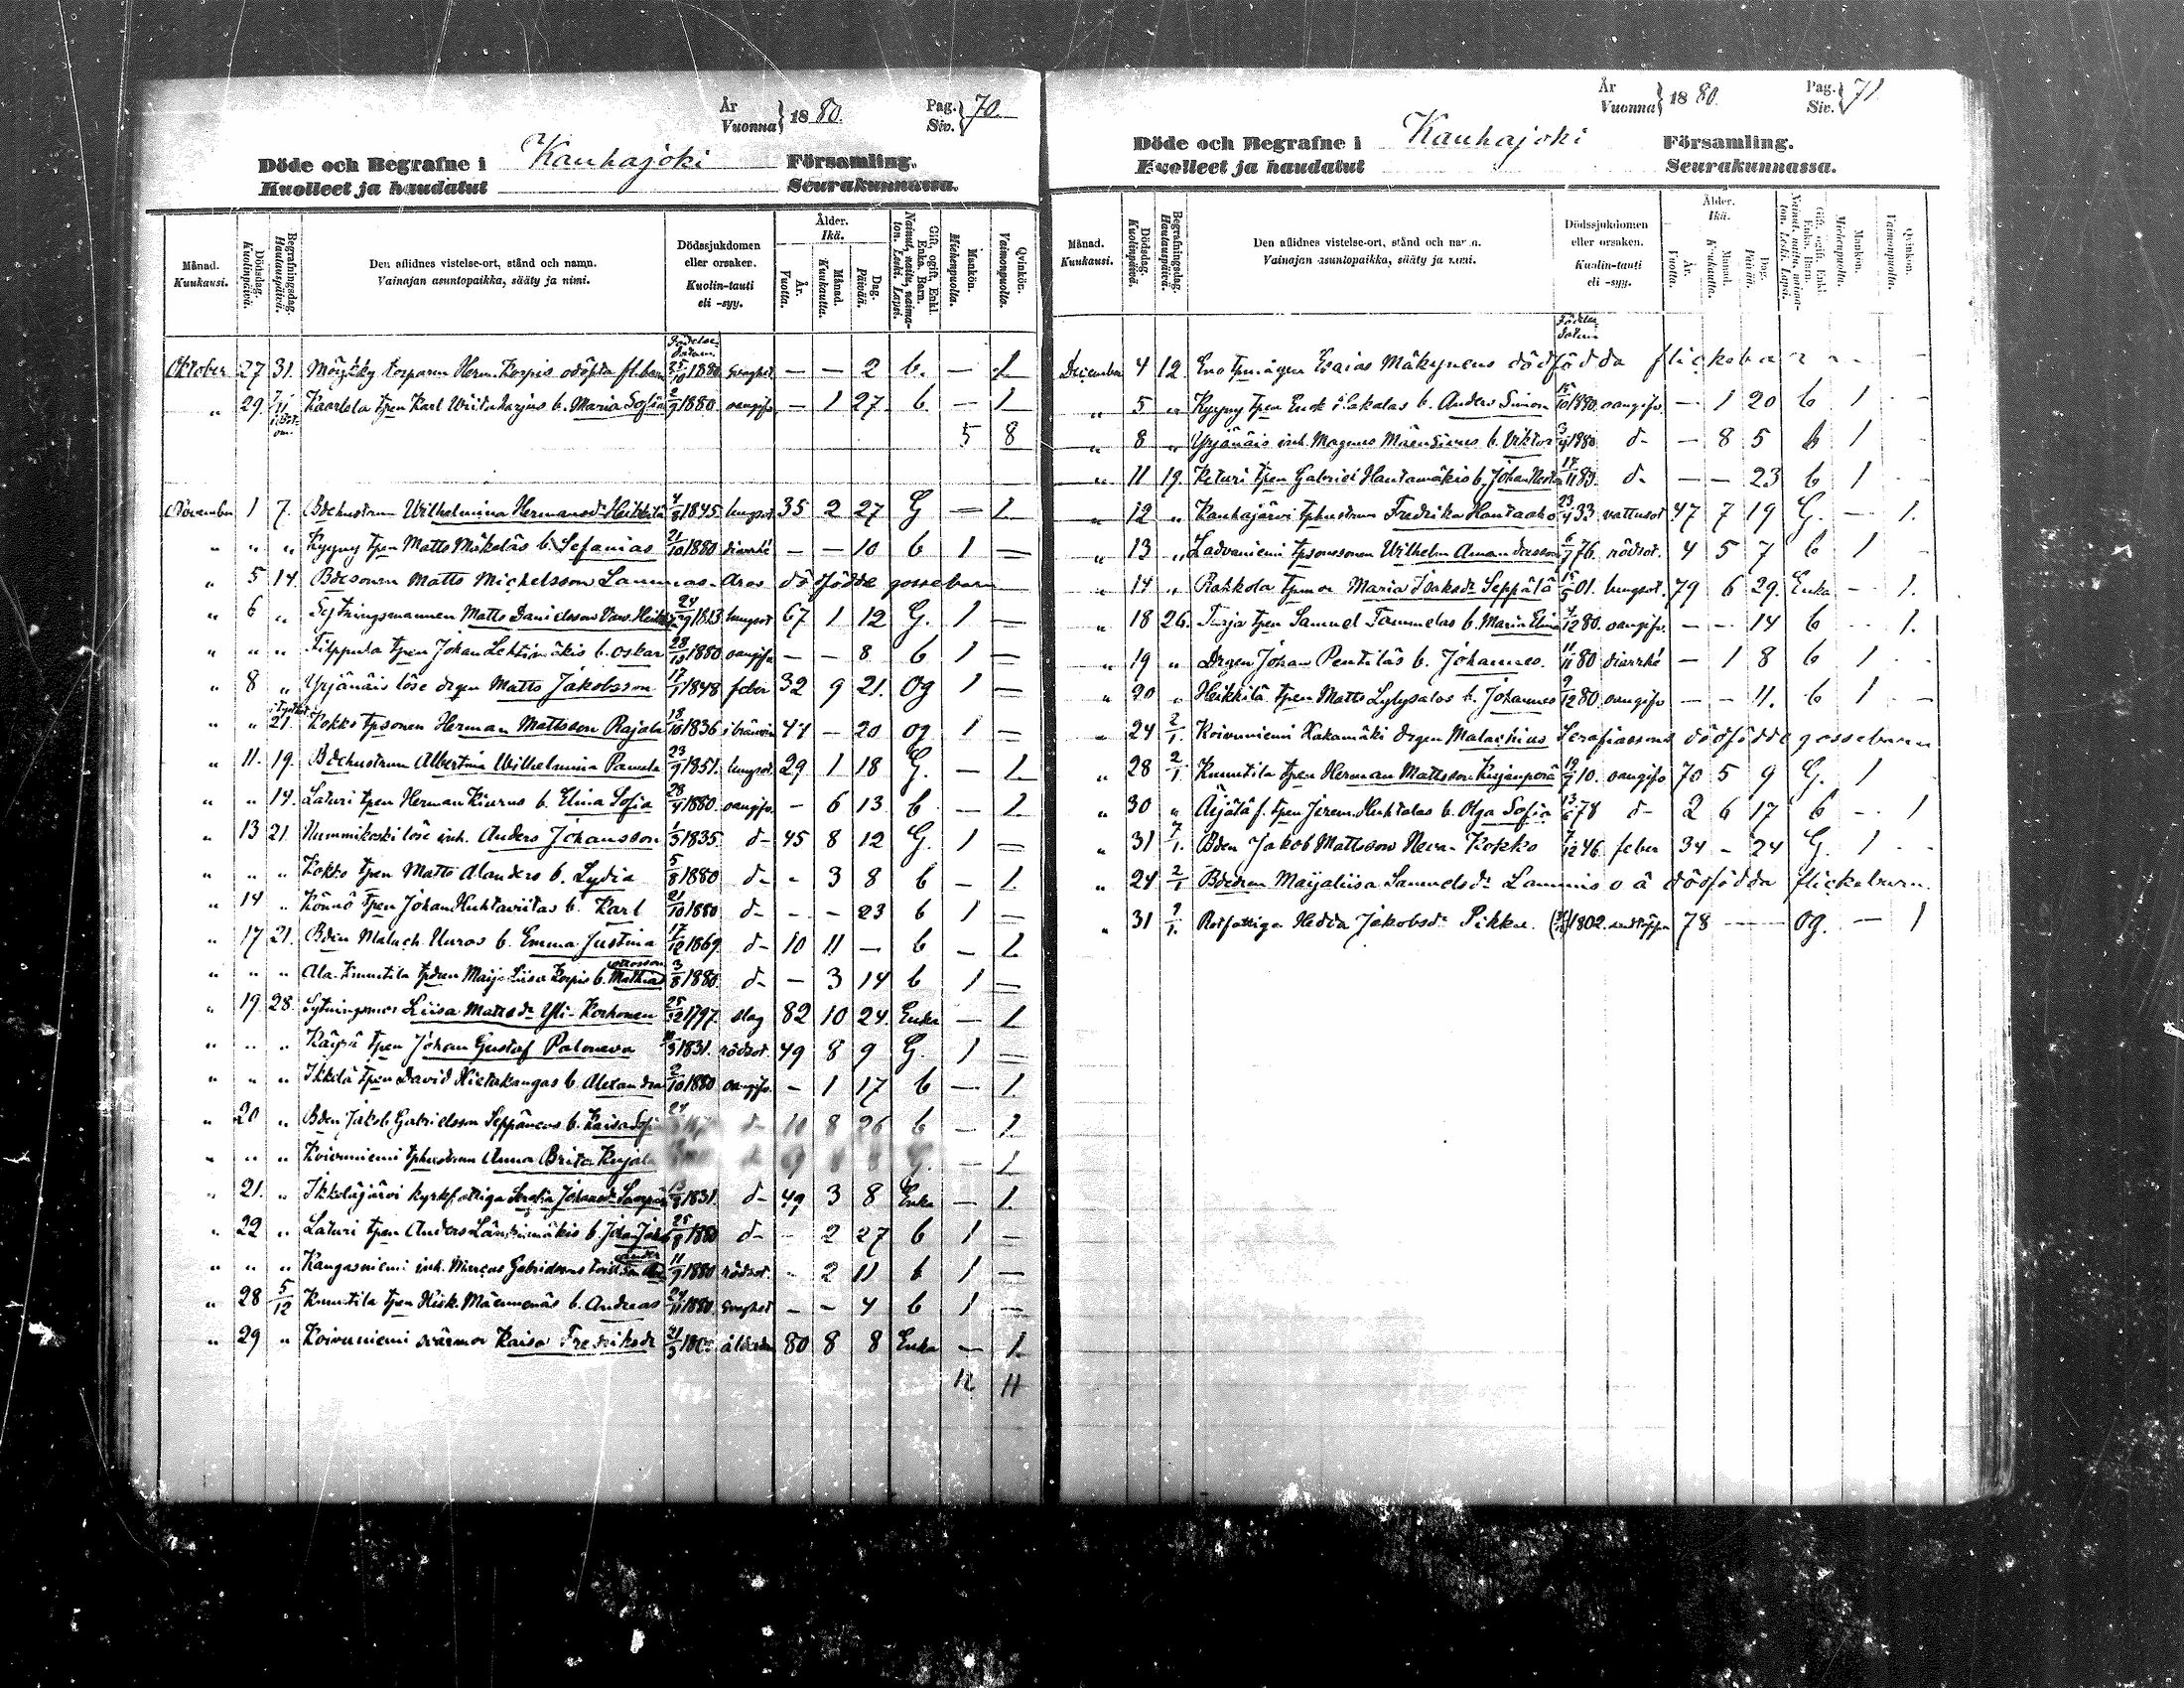 År
Vuonna } 1880. Pag. Siv. } 70.
Döde och Begrafne i Kauhajoki Församling.
Kuolleet ja haudatut Seurakunnassa.
Månad. Kuukausi. Dödsdag. Kuolinpäivä. Begrafningsdag. Hautauspäivä. Den aflidnes vistelse-ort, stånd och namn. Vainajan asuntopaikka, sääty ja nimi. Dödssjukdomen eller orsaken. Kuolin-tauti eli -syy. Ålder. Ikä. År. Vuotta. Månad. Kuukautta. Dag. Päivää. Gift, ogift, Enkl. Enka. Barn. Nainut, naitu, naimaton. Leski. Lapsi. Mankön. Miehenpuolta. Qvinkön. Vaimonpuolta.
Oktober 27 31. torparen Herm. Korpis odöpta fl. barn 25/10 1880 svaghet — — 2 b. — 1
„ 29. Kaarlela tpen Karl b. Maria Sofia 2/9 1880. oangifv. — 1 27. b. — 1
5 8
November 1 7. Bdehustrun Wilhelmina Hermansdr Heikkilä 4/8 1845 lungsot 35 2 27 G — 1
„ „ „ Kyyny tpen Matts Mäkeläs b. Sefanias 21/10 1880 diarrhé — — 10 b 1 —
„ 5 14. Bdesonen Matts Michelsson dödfödde gossebarn
„ 6 „ Sytningsmannen Matts Danielsson 24/9 1813 lungsot 67 1 12 G. 1 —
„ „ „ Filppula tpen Johan Lehtimäkis b. Oskar 28/10 1880 oangifv — — 8 b 1 —
„ 8 „ Yrjänäis löse drgen Matts Jakobsson 17/1 1848 feber 32 9 21. Og 1 —
„ „ 21. Kokko tpsonen Herman Mattsson Rajala 18/10 1836 44 — 20 og 1 —
„ 11. 19. Bdehustrun Albertina Wilhelmina 23/9 1851. lungsot. 29 1 18 G. — 1
„ „ 14. Laturi tpen Herman Kiurus b. Elina Sofia 28/4 1880. oangifv. — 6 13. b — 1.
„ 13 21. Nummikoski löse inh. Anders Johansson 1/3 1835. d- 45 8 12 G. 1 —
„ „ „ Kokko tpen Matts Alanders b. Lydia 5/8 1880 d- - 3 8 b — 1.
„ 14 „ Könnö tpen Johan Huhtaviitas b. Karl 21/10 1880 d- - - 23 b 1 —
„ 17 21. Bden Malach. Nuros b. Emma Justina 17/12 1869. d- 10 11 — b — 1
„ „ „ Ala-Knuutila tpdren Maija Liisa Korpis b. Mathias 3/8 1880. d- — 3 14 b 1 —
„ 19. 28. Sytningsmor Liisa Mattsdr Yli-Korhonen 25/12 1797. slag 82 10 24. Enka — 1
„ „ „ Käyrä tpen Johan Gustaf Paloneva 1831. rödsot. 49 8 9 G. 1 —
„ „ „ Ikkelä tpen David Hietakangas b. Alexandra 2/10 1880 oangifv. — 1 17 b — 1.
„ 20 „ Bden Jakob Gabrielsson Seppäneus b. Kaisa Sofi d- 10 8 26 b — 1.
„ „ „ Koivuniemi tphustrun Anna Brita Kujala G. — 1
„ 21. „ Ikkeläjärvi kyrkfattiga Serafia Johansdr 1831. d- 49 3 8 Enka — 1.
„ 22 „ Laturi tpen Anders Länsimäkis b. 25/8 1880 d- - 2 27 b 1 —
„ „ „ Kangasniemi inh. Gabrielssons 11/9 1880 rödsot. - 2 11 b 1 —
„ 28 5/12 Knuutila tpen Hisk. Mäenmenäs b. Andreas 24/11 1880. svaghet — — 4 b 1 —
„ 29 „ Koivuniemi svärmor Kaisa Fredriksdr 21/3 ålderdom 80 8 8 Enka — 1.
12 11
År
Vuonna } 1880. Pag. Siv. } 71
Döde och Begrafne i Kauhajoki Församling.
Kuolleet ja haudatut Seurakunnassa.
Månad. Kuukausi. Dödsdag. Kuolinpäivä. Begrafningsdag. Hautauspäivä. Den aflidnes vistelse-ort, stånd och namn. Vainajan asuntopaikka, sääty ja nimi. Dödssjukdomen eller orsaken. Kuolin-tauti eli -syy. Ålder. Ikä. År. Vuotta. Månad. Kuukautta. Dag. Päivää. Gift, ogift, Enkl. Enka. Barn. Nainut, naitu, naimaton. Leski. Lapsi. Mankön. Miehenpuolta. Qvinkön. Vaimonpuolta.
December 4 12. Esaias Mäkynens dödfödda flickebarn
„ 5 „ Kyyny tpen Enok Hakalas b. Anders Simon 15/10 1880. oangifv. — 1 20 b 1
„ 8 „ Yrjänäis inh. Magnus b. Viktor 3/4 1880. d- — 8 5 b 1 —
„ 11 19. Keturi tpen Gabriel Hautamäkis b. Johan 17/11 80. d- — — 23 b 1 —
„ 12 „ Kauhajärvi tphustrun Fredrika Hautaoho 23/4 33. vattusot 47 7 19 G. — 1.
„ 13 „ Ladvaniemi tpsonssonen Wilhelm Amandasson 6/7 76. rödsot. 4 5 7 b 1 —
„ 14 „ Rahkola tpmor Maria Isaksdr Seppälä 15/5 01. lungsot. 79 6 29. Enka — 1.
„ 18 26. Turja tpen Samuel Tammelas b. Maria Elina 4/12 80. oangifv. — — 14 b — 1.
„ 19 „ Drgen Johan Penttiläs b. Johannes. 11/11 80 diarrhé — 1 8 b 1 —
„ 20 „ Heikkilä tpen Matts Lylysalos b. Johannes 9/12 80. oangifv — — 11. b 1 —
„ 24 2/1. Koivuniemi Kakamäki drgen Malachias Serafiassons dödfödde gossebarn
„ 28 2/1. Knuutila tpen Herman Mattsson 19/7 10. oangifv 70 5 9 G. 1
„ 30 „ Äijälä f. tpen Jerem. Huhtalas b. Olga Sofia 13/6 78 d- 2 6 17 b — 1
„ 31 Bden Jakob Mattsson Neva-Kokko 7/12 46. feber 34 - 24 G. 1 —
„ 24 2/1 Bdedren Maijaliisa Samuelsdr Lammis o ä dödfödda flickebarn.
„ 31 Rotfattiga Hedda Jakobsdr Pikku. 1802. 78 — — Og. — 1